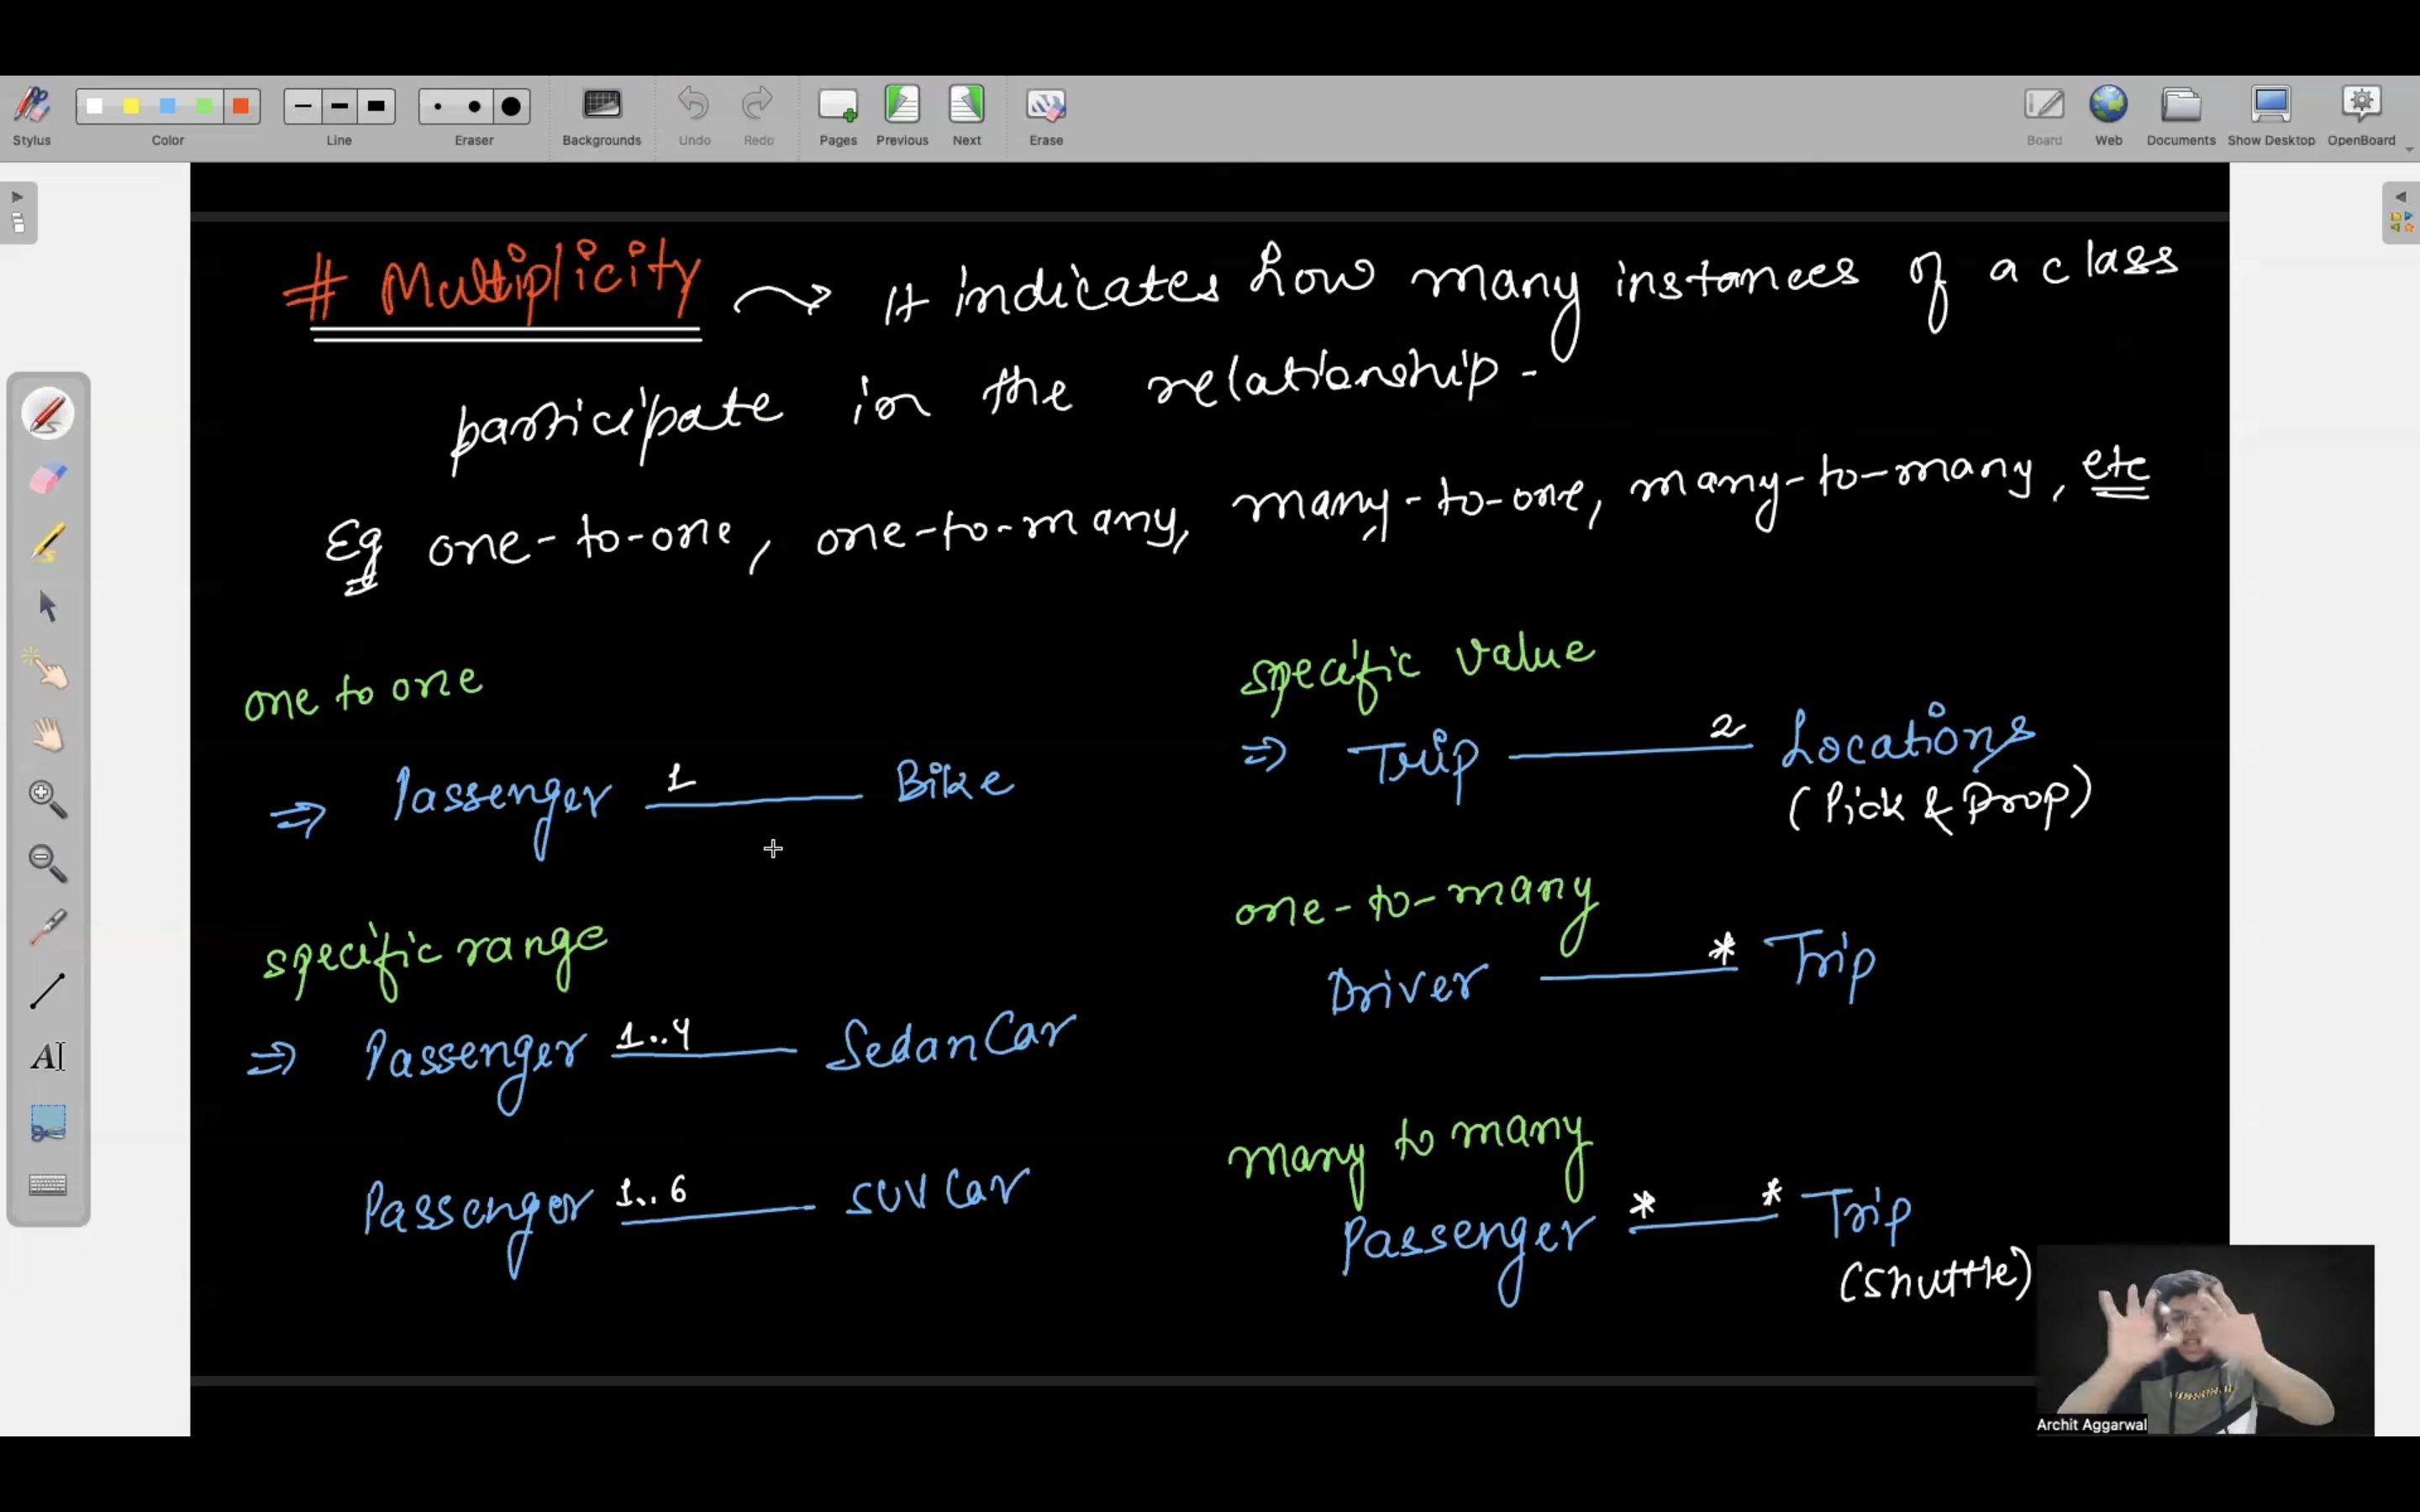 Stylus
Color
Line
Eraser
Backgrounds
Undo
Redo
Pages
Previous
Next
Erase
Board
Web
Documents
Show Desktop
OpenBoard
# Multiplicity ⤳ It indicates how many instances of a class
participate in the relationship -
Eg one-to-one, one-to-many, many-to-one, many-to-many, etc
one to one
⇒ Passenger 1 Bike
specific range
⇒ Passenger 1..4 SedanCar
Passenger 1..6 SUV Car
specific value
⇒ Trip 2 Locations
(Pick & Drop)
one-to-many
Driver * Trip
many to many
Passenger * * Trip
(Shuttle)
AI
Archit Aggarwal